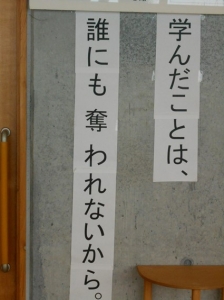 学んだことは、
誰にも 奪 われないから。